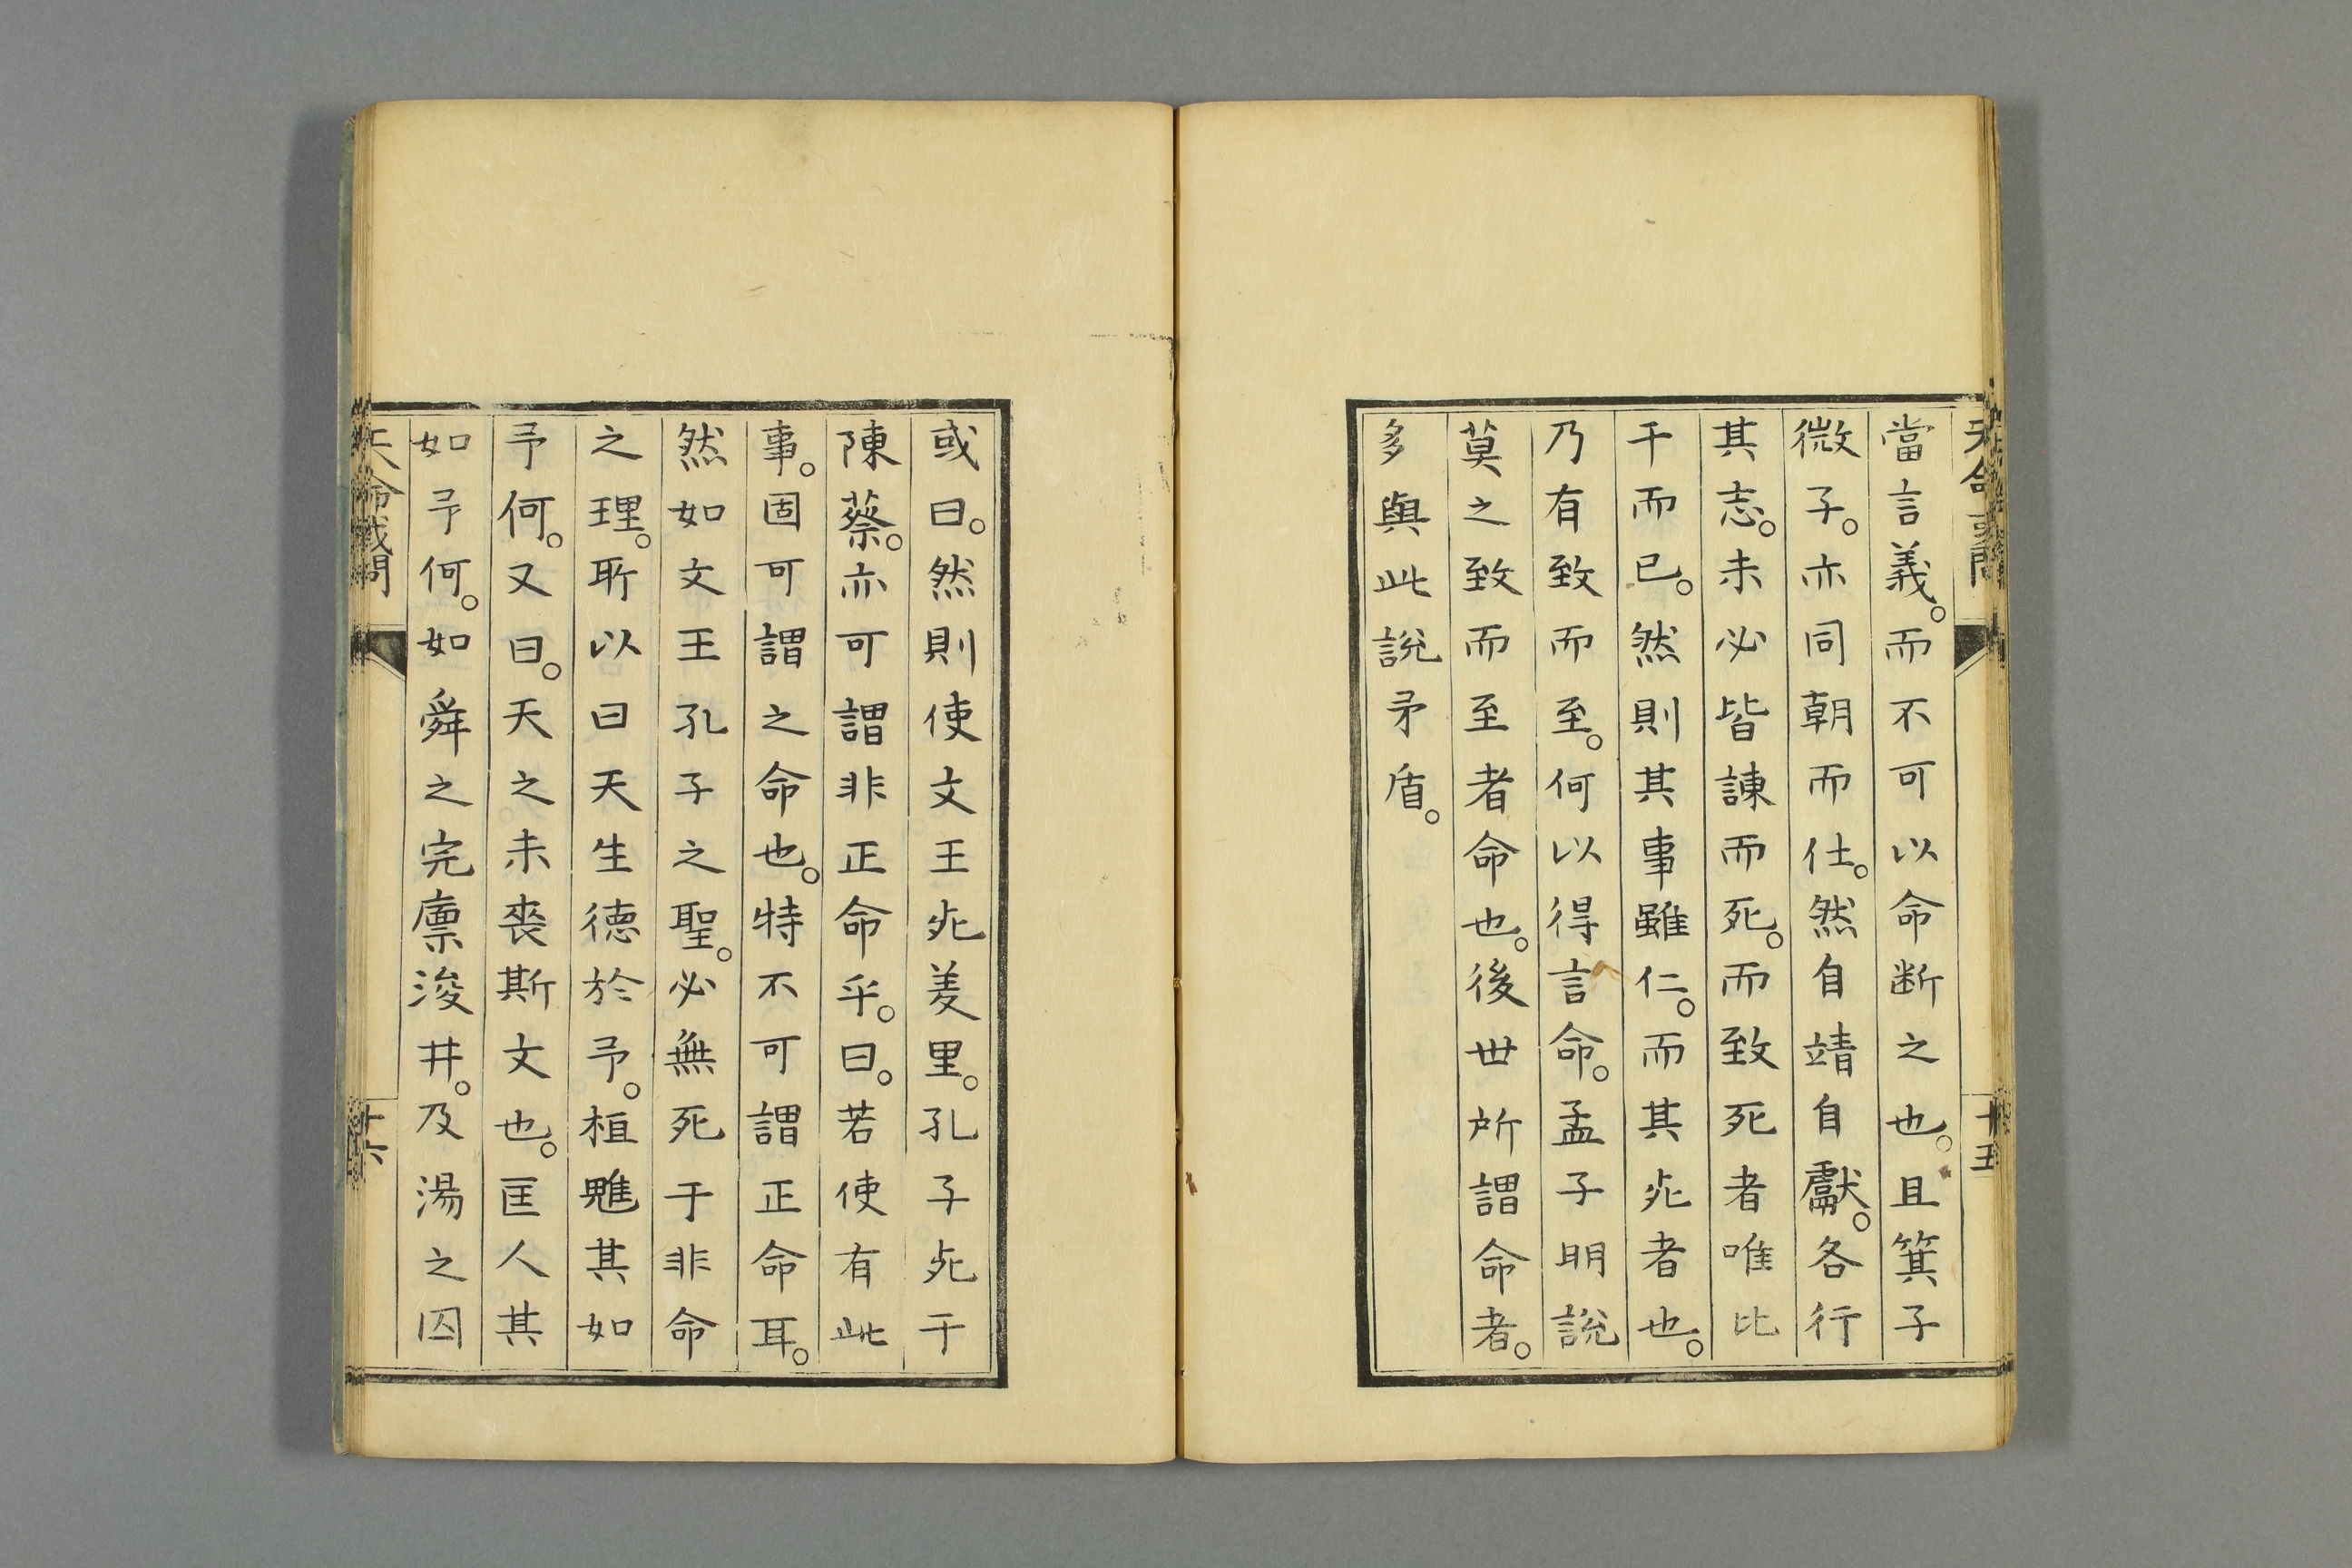 天命或問
十五
當言義。而不可以命断之也。且箕子
微子。亦同朝而仕。然自靖自獻。各行
其志。未必皆諌而死。而致死者唯比
干而已。然則其事雖仁。而其死者也。
乃有致而至。何以得言命。孟子明說
莫之致而至者命也。後世所謂命者。
多與此說矛盾。
或曰。然則使文王死羑里。孔子死于
陳蔡。亦可謂非正命乎。曰。若使有此
事。固可謂之命也。特不可謂正命耳。
然如文王孔子之聖。必無死于非命
之理。所以曰天生德於予。桓魋其如
予何。又曰。天之未喪斯文也。匡人其
如予何。如舜之完廩浚井。及湯之囚
天命或問
十六